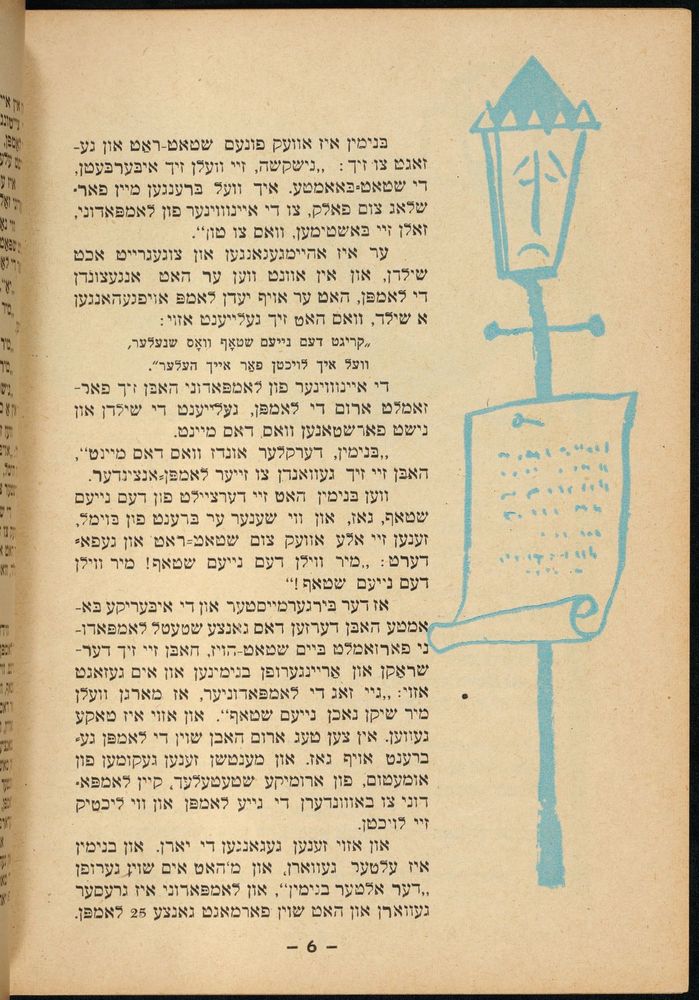 בנימין איז אװעק פונעם שטאַט-ראַט און גע-
זאָגט צו זיך: ,,נישקשה, זײ װעלן זיך איבערבעטן,
די שטאַט-באַאַמטע. איך װעל ברענגען מײן פאָר-
שלאַג צום פאָלק, צו די אײנװױנער פון לאַמפּאַדוני,
זאָלן זײ באַשטימען, װאָס צו טון‟.
ער איז אַהײמגעגאַנגען און צוגעגרײט אַכט
שילדן, און אין אָװנט װען ער האָט אָנגעצונדן
די לאָמפּן, האָט ער אױף יעדן לאָמפּ אױפגעהאַנגען
אַ שילד, װאָס האָט זיך געלײענט אַזױ:
„קריגט דעם נײעם שטאָף װאָס שנעלער,
װעל איך לױכטן פאַר אײך העלער‟.
די אײנװױנער פון לאַמפּאַדוני האָבן זיך פאַר-
זאַמלט אַרום די לאָמפּן, געלײענט די שילדן און
נישט פאַרשטאַנען װאָס דאָס מײנט.
,,בנימין, דערקלער אונדז װאָס דאָס מײנט‟,
האָבן זײ זיך געװאָנדן צו זײער לאָמפּן-אָנצינדער.
װען בנימין האָט זײ דערצײלט פון דעם נײעם
שטאָף, גאַז, און װי שענער ער ברענט פון בױמל,
זענען זײ אַלע אװעק צום שטאַט-ראַט און געפאָ-
דערט: ,,מיר װילן דעם נײעם שטאָף! מיר װילן
דעם נײעם שטאָף!‟
אַז דער בירגערמײסטער און די איבעריקע באַ-
אַמטע האָבן דערזען דאָס גאַנצע שטעטל לאַמפּאַדו-
ני פאַרזאַמלט בײם שטאָט-הױז, האָבן זײ זיך דער-
שראָקן און אַרײנגערופן בנימינען און אים געזאָגט
אַזױ: ,,גײ זאָג די לאַמפּאַדוניער, אַז מאָרגן װעלן
מיר שיקן נאָכן נײעם שטאָף‟. און אַזױ איז טאַקע
געװען. אין צען טעג אַרום האָבן שױן די לאָמפּן גע-
ברענט אױף גאַז. און מענטשן זענען געקומען פון
אומעטום, פון אַרומיקע שטעטעלעך, קײן לאַמפּאַ-
דוני צו באַװוּנדערן די נײע לאָמפּן און װי ליכטיק
זײ לױכטן.
און אַזױ זענען געגאַנגען די יאָרן. און בנימין
איז עלטער געװאָרן, און מ'האָט אים שױן גערופן
,,דער אַלטער בנימין‟, און לאַמפּאַדוני איז גרעסער
געװאָרן און האָט שױן פאַרמאָגט גאַנצע 25 לאָמפּן.
– 6 –